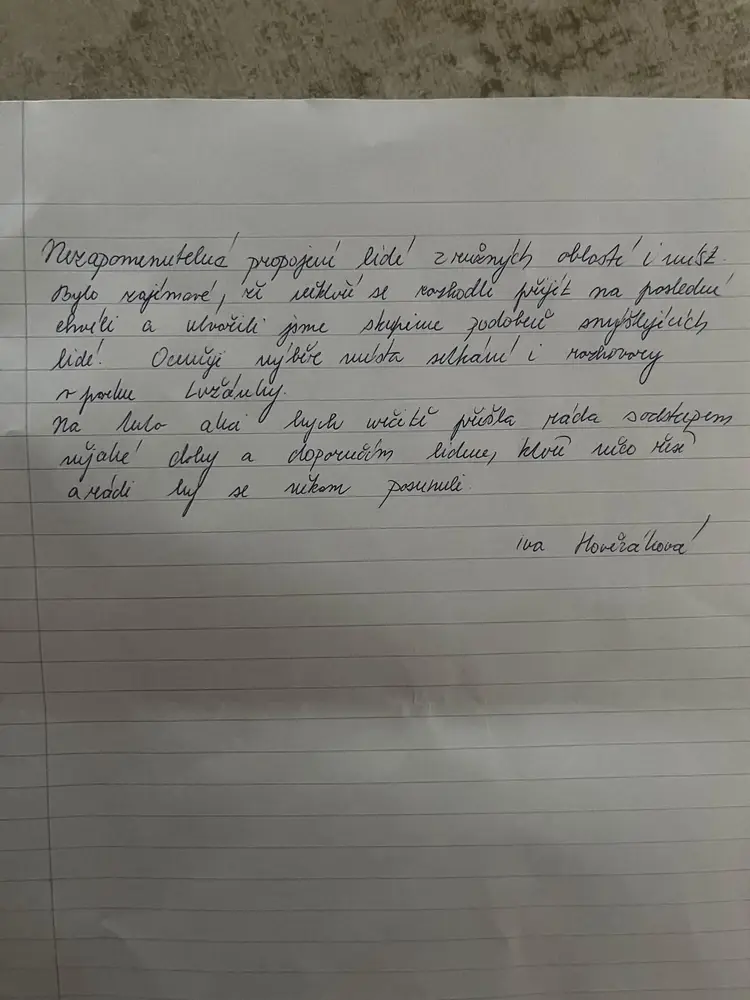 Nezapomenutelná propojení lidí z různých oblastí i míst.
Bylo zajímavé, že někteří se rozhodli přijít na poslední
chvíli a utvořili jsme skupinu podobně smýšlejících
lidí. Oceňuji výběr místa setkání i rozhovory
v parku Lužánky.
Na tuto akci bych určitě přišla ráda s odstupem
nějaké doby a doporučím lidem, kteří něco řeší
a rádi by se někam posunuli.
Iva